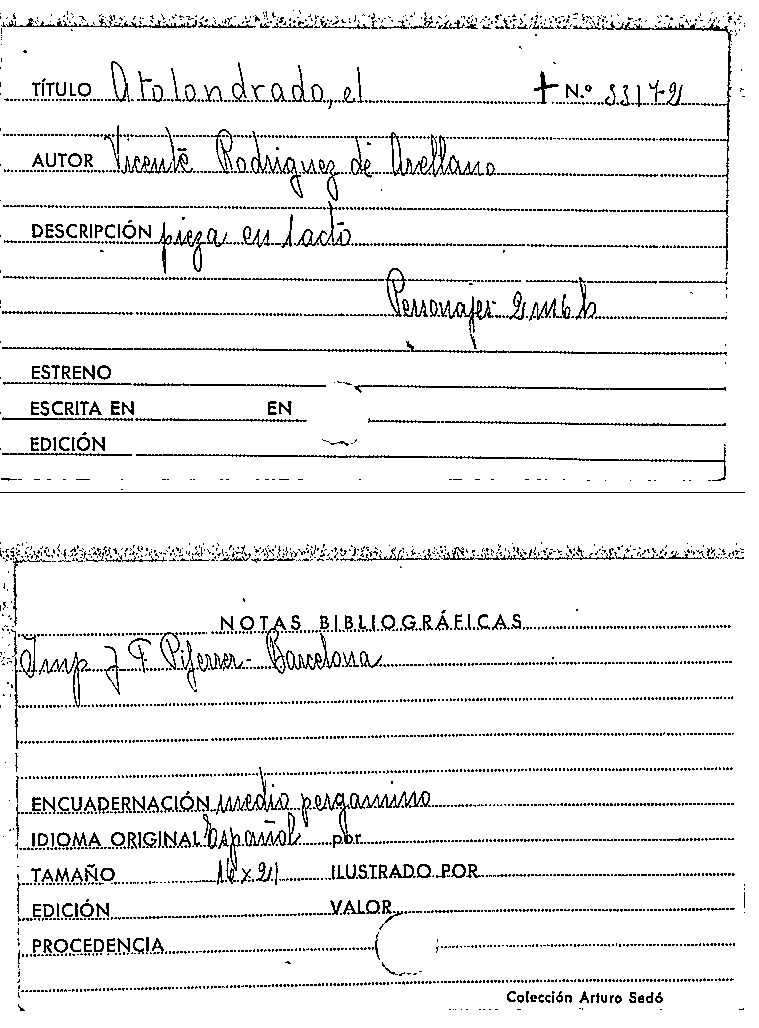 TÍTULO Atolondrado, el + N.º 33172
AUTOR Vicente Rodriguez de Arellano
DESCRIPCIÓN pieza en 1 acto
Personajes 2 m 6 h
ESTRENO
ESCRITA EN EN
EDICIÓN
NOTAS BIBLIOGRÁFICAS
Imp J F Piferrer - Barcelona
ENCUADERNACIÓN medio pergamino
IDIOMA ORIGINAL Español por
TAMAÑO 16 x 21 ILUSTRADO POR
EDICIÓN VALOR
PROCEDENCIA
Colección Arturo Sedó